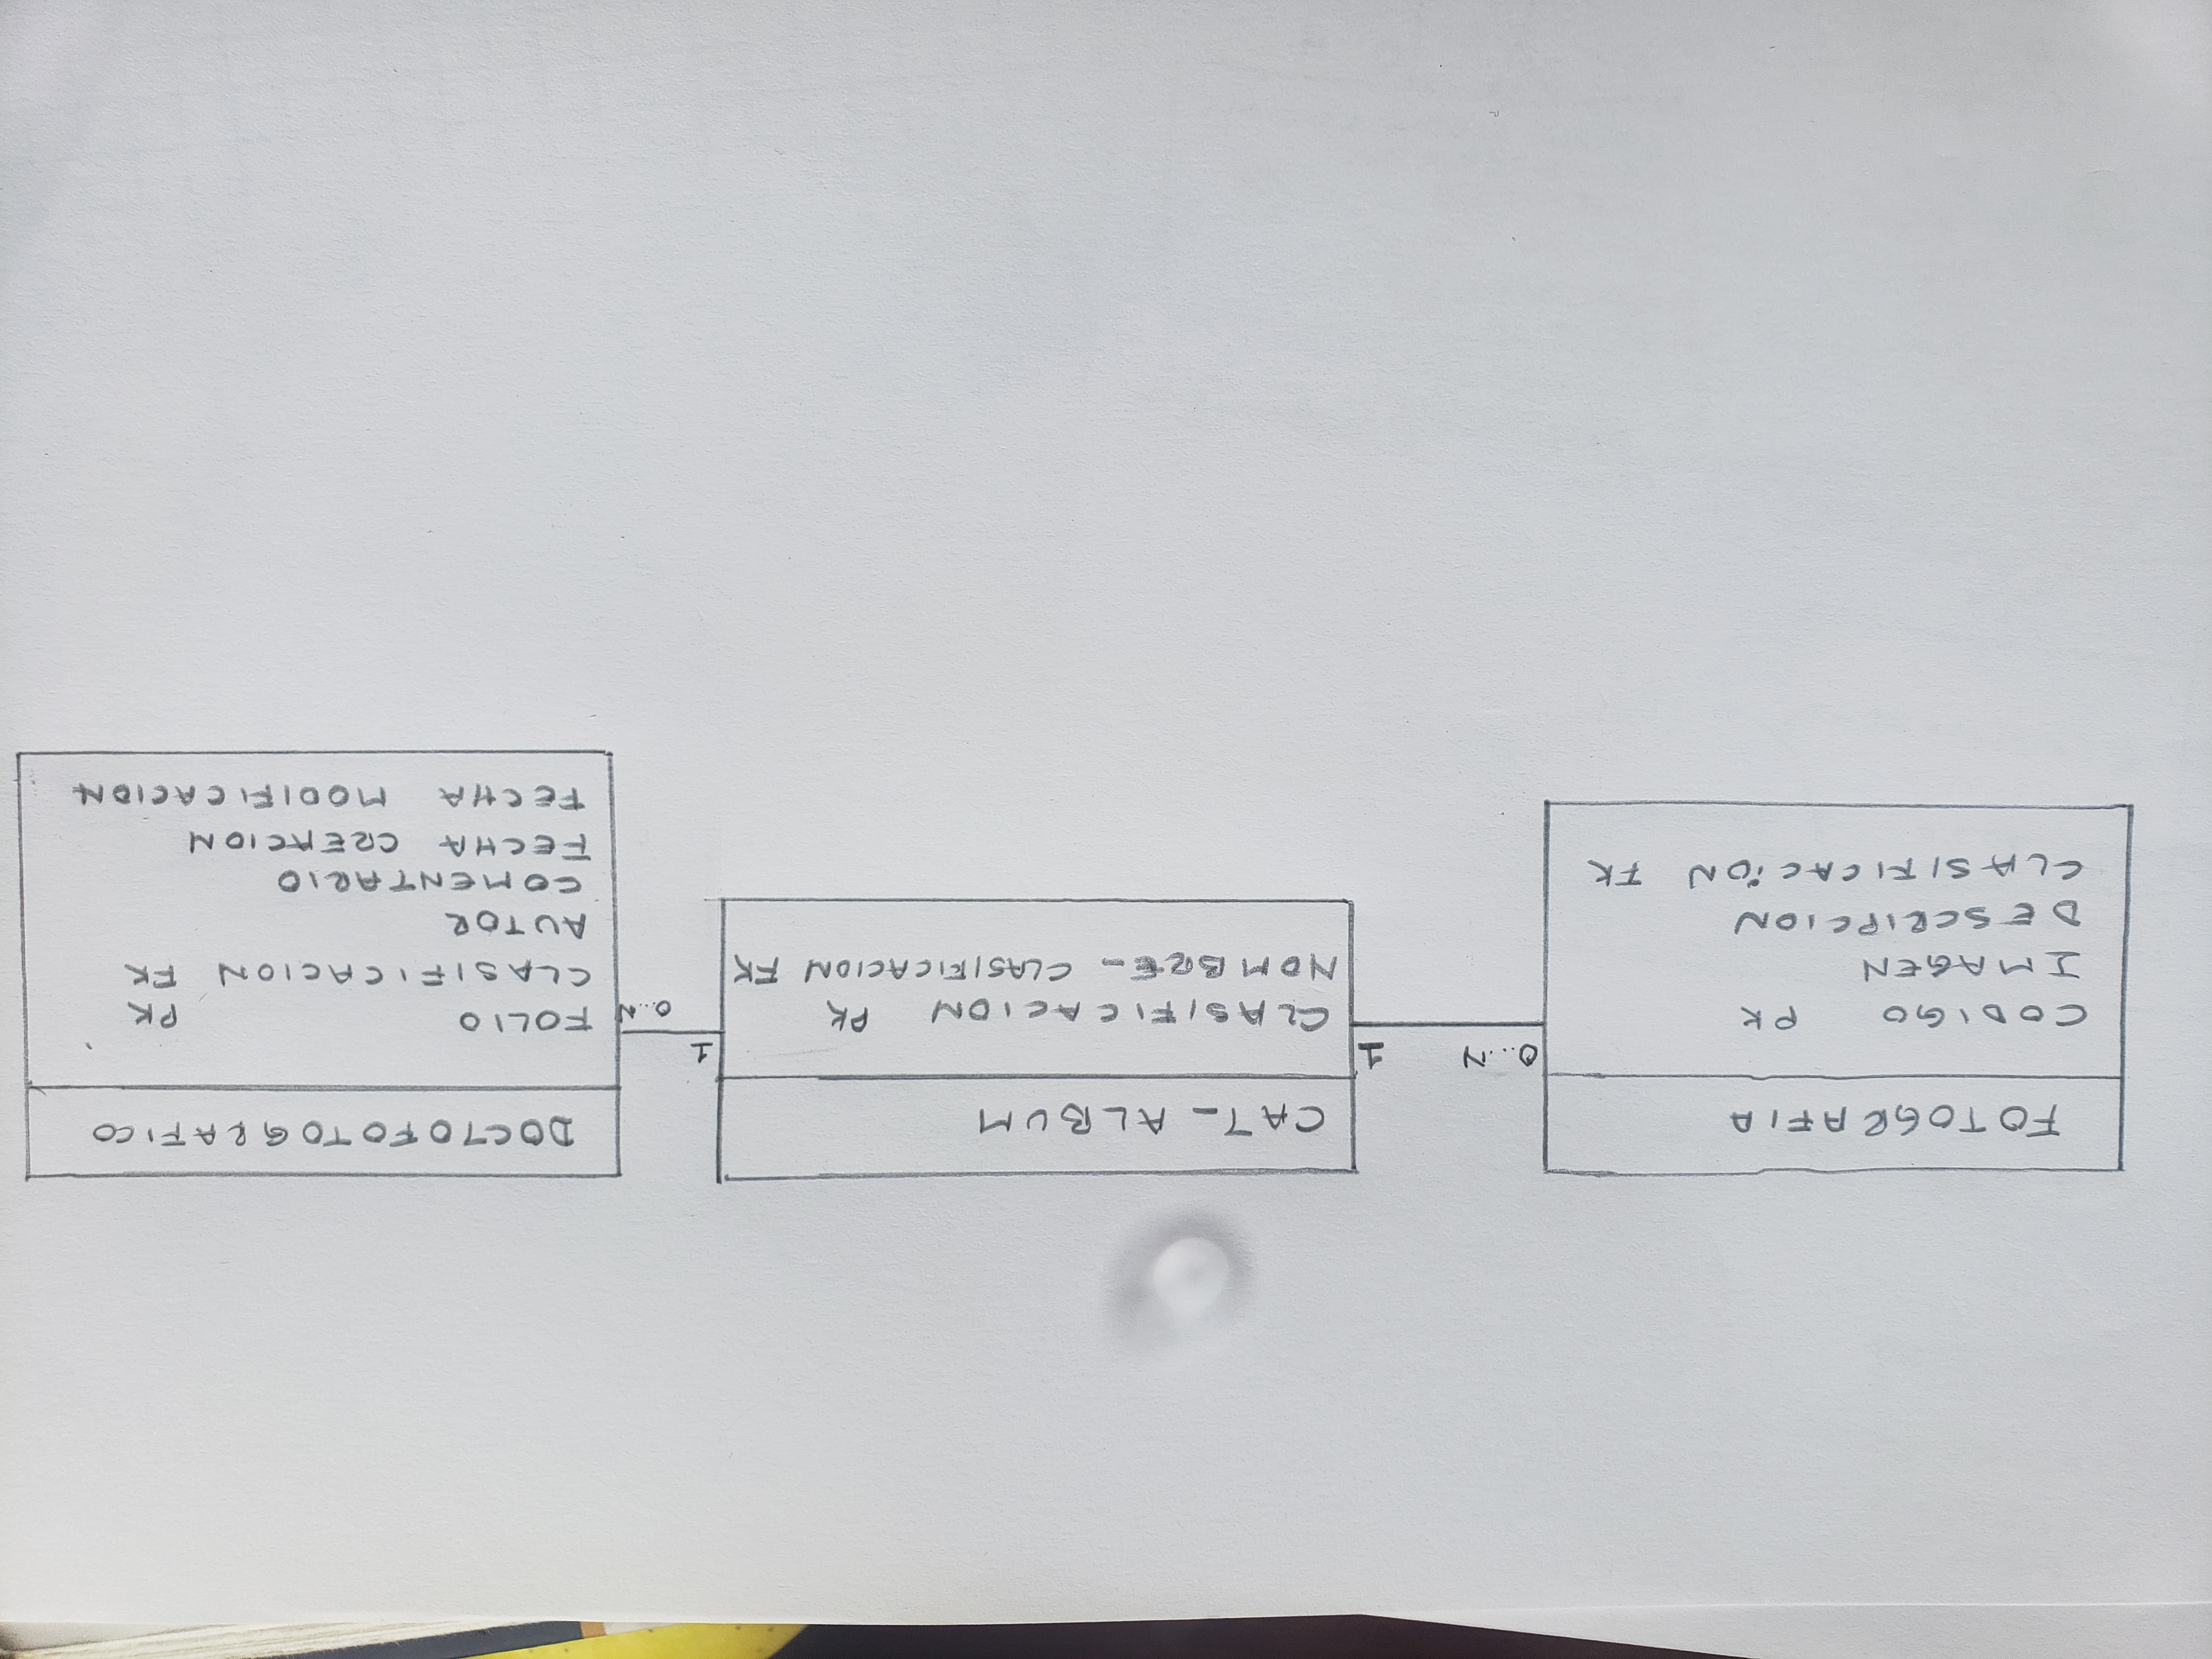 FOTOGRAFIA
CODIGO PK
IMAGEN
DESCRIPCION
CLASIFICACION FK
0...N 1
CAT_ ALBUM
CLASIFICACION PK
NOMBRE_ CLASIFICACION FK
1
0...N
DOCTOFOTOGRAFICO
FOLIO PK
CLASIFICACION FK
AUTOR
COMENTARIO
FECHA CREACION
FECHA MODIFICACION